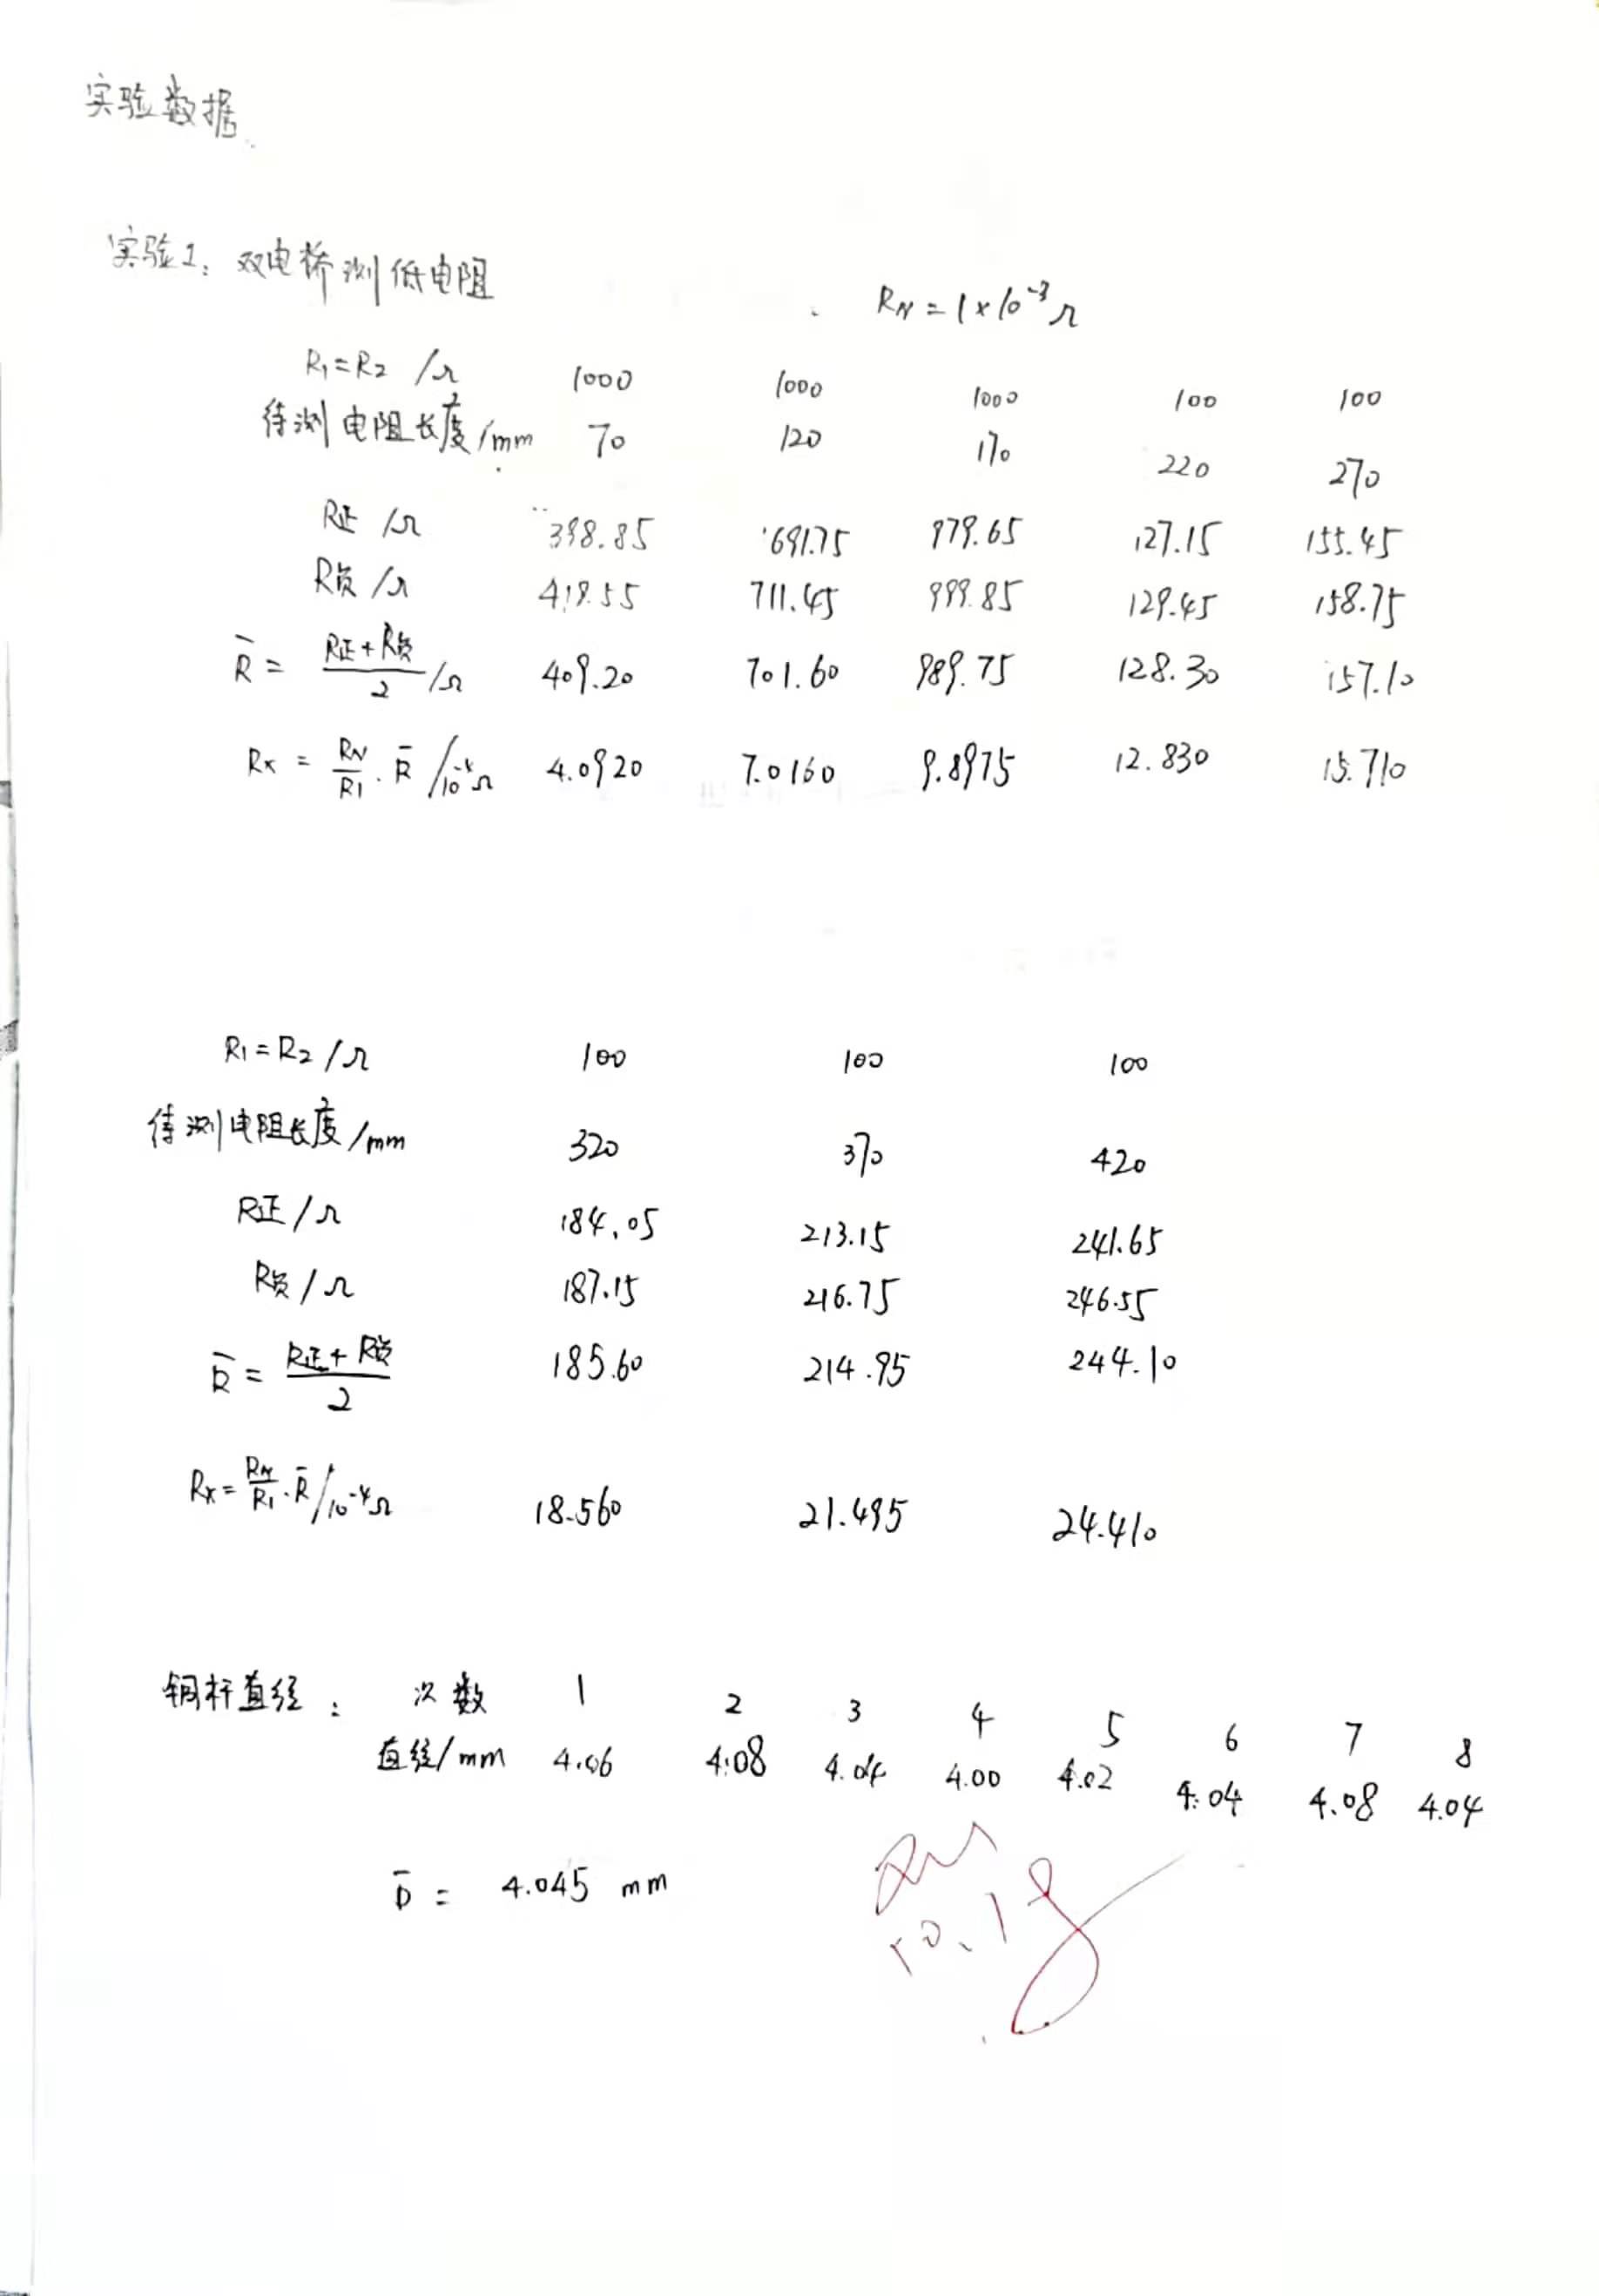 实验数据
实验1: 双电桥测低电阻
RN = 1×10⁻³Ω
R1=R2 /Ω 1000 1000 1000 100 100
待测电阻长度/mm 70 120 170 220 270
R正 /Ω 398.85 691.75 979.65 127.15 155.45
R负 /Ω 419.55 711.45 999.85 129.45 158.75
R̄ = (R正+R负)/2 /Ω 409.20 701.60 989.75 128.30 157.10
Rx = RN/R1 · R̄ /10⁻⁴Ω 4.0920 7.0160 9.8975 12.830 15.710
R1=R2 /Ω 100 100 100
待测电阻长度/mm 320 370 420
R正/Ω 184.05 213.15 241.65
R负/Ω 187.15 216.75 246.55
R̄ = (R正+R负)/2 185.60 214.95 244.10
Rx = RN/R1 · R̄ /10⁻⁴Ω 18.560 21.495 24.410
铜杆直径: 次数 1 2 3 4 5 6 7 8
直径/mm 4.06 4.08 4.04 4.00 4.02 4.04 4.08 4.04
D̄ = 4.045 mm